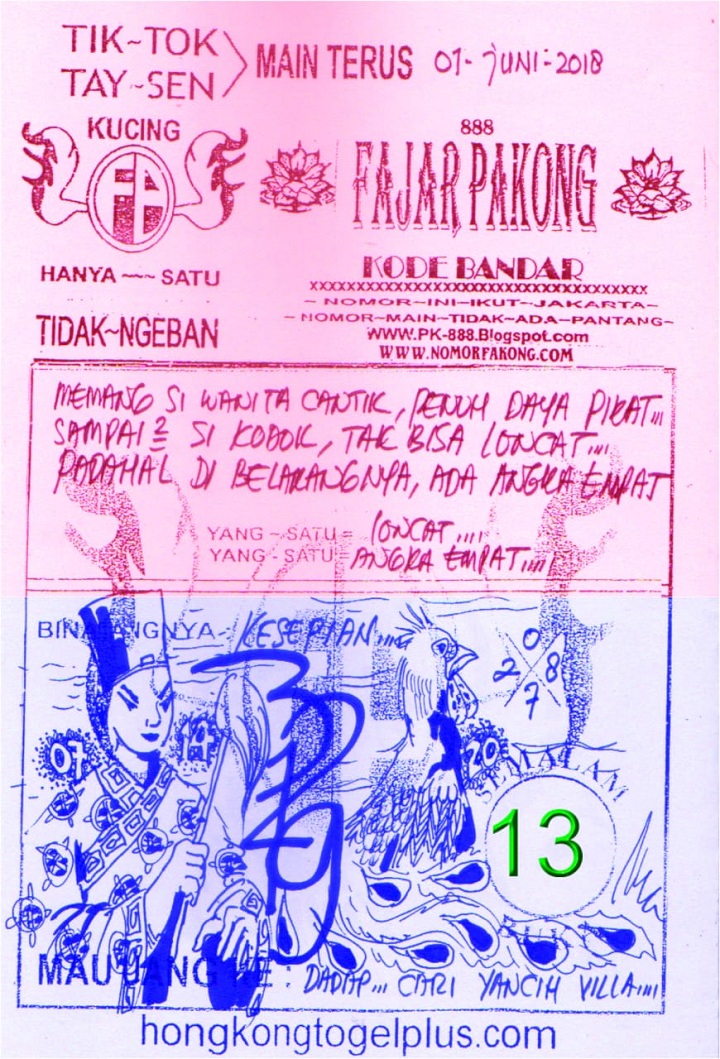 TIK~TOK
TAY~SEN
MAIN TERUS 01-JUNI-2018
KUCING
HANYA ~~~ SATU
TIDAK~NGEBAN
888
FAJAR PAKONG
KODE BANDAR
xxxxxxxxxxxxxxxxxxxxxxxxxxxxxxxxxxxxxxx
~ NOMOR~INI~IKUT~JAKARTA~
~ NOMOR~MAIN~TIDAK~ADA~PANTANG~
WWW.PK-888.Blogspot.com
WWW.NOMORPAKONG.COM
MEMANG SI WANITA CANTIK, PENUH DAYA PIKAT...
SAMPAI2 SI KODOK, TAK BISA LONCAT....
PADAHAL DI BELAKANGNYA, ADA ANGKA EMPAT
YANG ~ SATU = LONCAT....
YANG - SATU = ANGKA EMPAT....
BINATANGNYA KESEPIAN....
0
2 8
7
07
14
20
SEMALAM
13
MAU UANG KE : DADAP... CARI YANCIH VILLA....
hongkongtogelplus.com